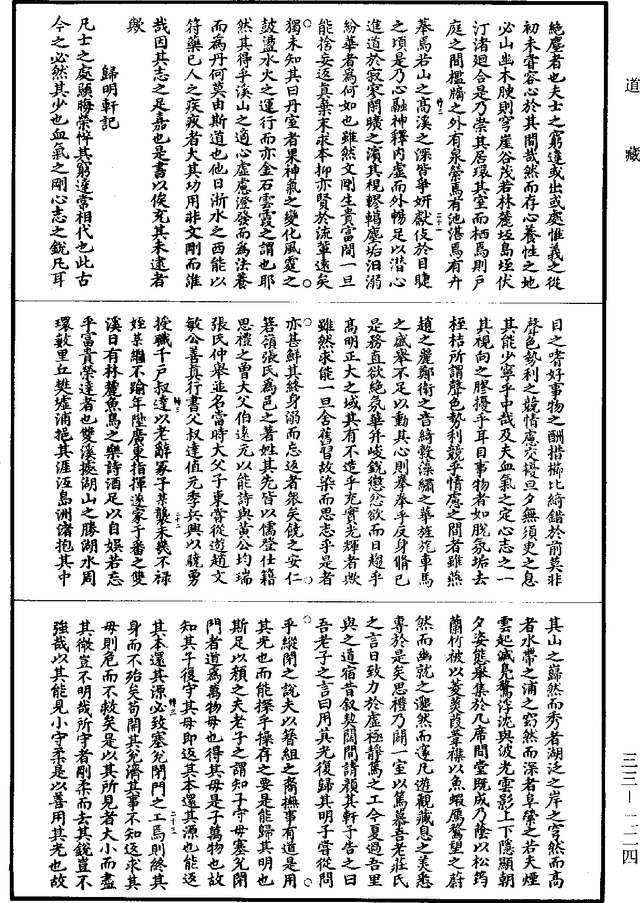 道藏
三三—二二四
絶塵者也夫士之窮達或出或處惟義之從
初未嘗容心於其間哉然而存心養性之地
必山幽木腴則穹崖谷茂若林麓坻島垤伏
汀渚廻合是乃崇其居環其室而栖焉則户
庭之間檻牖之外有泉縈焉有池湛焉有卉
葢焉若山之高溪之深皆華妍獻伎於目睫
之頃是乃心融神釋内虚而外暢足以潜心
進道於寂寥閒曠之濱其視轇轕塵垢汩溺
紛華者為何如也雖然文剛生貴富間一旦
能捨妄返真棄末求本抑亦賢於流輩遠矣
獨未知其曰丹室者果神氣之變化風霆之
鼓盪水火之運行而亦金石雲霞之謂也耶
然其得乎溪山之適心虚慮澄發而為法養
而為丹何莫由斯道也他日浙水之西能以
符藥已人之疾疢者大其功用非文剛而誰
哉因其志之足嘉也是書以俟充其未逮者
歟
歸明軒記
凡士之處顯晦榮悴其窮達當相代也此古
今之必然其少也血氣之剛心志之銳凡耳
目之嗜好事物之酬措櫛比綺錯於前莫非
聲色勢利之競情慮交擾旦夕無須臾之息
其能少寧乎中哉及夫血氣之定心志之一
其視向之膠擾乎耳目事物者如脫氛垢去
桎梏所謂聲色勢利競乎情慮之間者雖燕
趙之麗鄭衛之音綺縠藻繡之華旌旄車馬
之盛舉不足以動其心則拳拳乎反身脩已
是務直欲絶氛華并峻銳懲忿欲而日趨乎
高明正大之域其有不造乎充實光輝者歟
雖然求能一旦舍舊習故染而思志乎是者
亦甚鮮其終身溺而忘返者衆矣饒之安仁
箬嶺張氏為邑之著姓其先皆以儒登仕籍
思禮之曽大父伯遠元以能詩與黄公均瑞
張氏仲舉並名當時大父子東嘗從遊趙文
敏公善真行書父叔達值元季兵興以驍勇
授職千户叔達以老辭冢子某襲未幾不禄
姪某繼不踰年陞廣東指揮遂家于番之雙
溪日有林麓魚鳥之樂詩酒足以自娯若忘
乎富貴榮達者也雙溪據湖山之勝湖水周
環數里丘樊墟浦挹其涯沍島洲渚抱其中
其山之巋然而秀者湖泛之岸之穹然而高
者水帶之浦之窈然而深者阜縈之若夫煙
雲起滅鳧鷖浮沈與波光雲影上下隱顯朝
夕姿態舉集於几席間堂既成乃䕃以松筠
蘭竹被以菱茭葭葦褋以魚蝦鴈鶩望之蔚
然而幽就之邃然而邃凡遊觀藏息之美悉
專於是矣思禮乃闢一室以篤慕吾老莊氏
之言日致力於虚極靜篤之工今夏過吾里
與之道宿昔叙契闊間請顏其軒子告之曰
吾老子之言曰用其光復歸其明子嘗從問
乎縱閉之說夫以簪組之裔撫事有道是用
其光也而能探乎操存之要是能歸其明也
斯足以顏之夫老子之謂知子守母塞兊閉
門者道為萬物母也得其母是子萬物也故
知其子復守其母即返其本還其源也能返
其本還其源必致塞兊閉門之工焉則終其
身而不殆矣茍開其兊濟其事不知返求其
母則危而不救矣是以其所見者大小而盡
其徼豈不明哉所守者剛柔而去其銳豈不
強哉以其能見小守柔是以善用其光也故